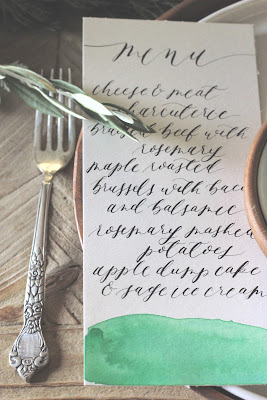 menu
cheese & meat
charcuterie
braised beef with
rosemary
maple roasted
brussels with baco
and balsamic
rosemary mashed
potatoes
apple dump cake
& sage ice cream